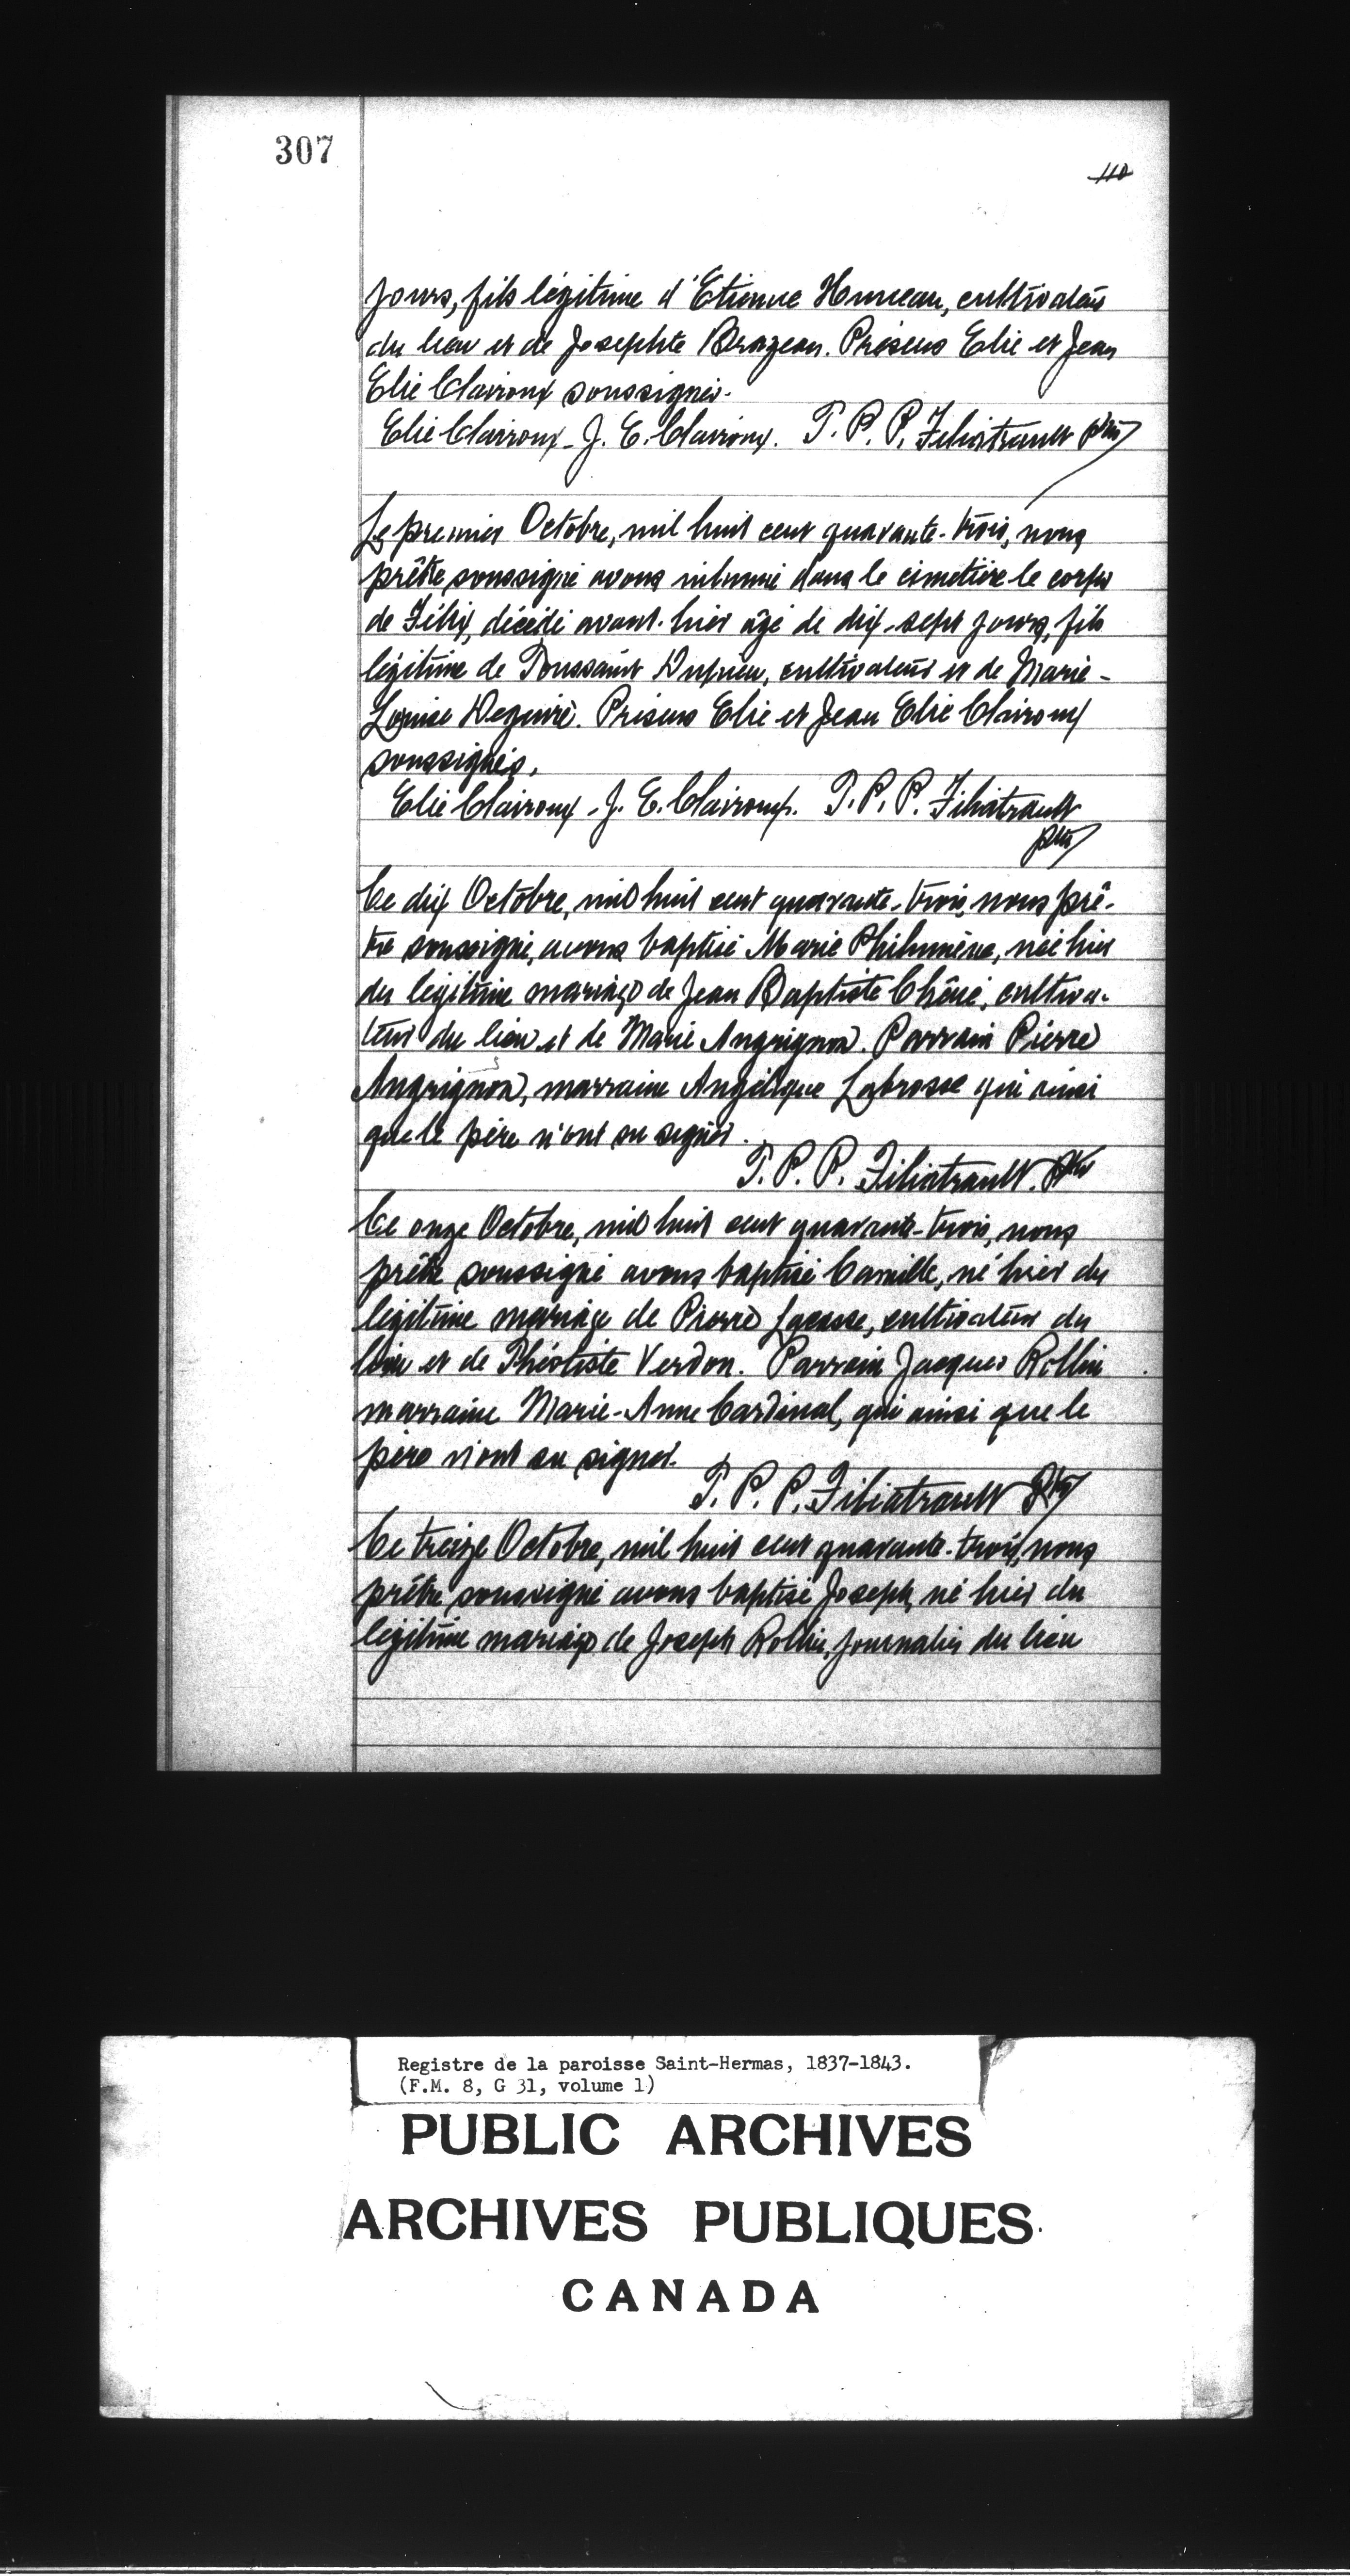 307
110
jours, fils légitime d'Etienne Huneau, cultivateur
du lieu et de Josephte Brazeau. Présens Elie et Jean
Elie Clairoux soussignés.
Elie Clairoux - J. E. Clairoux. T. P. P. Filiatrault ptre
Le premier Octobre, mil huit cent quarante-trois, nous
prêtre soussigné avons inhumé dans le cimetière le corps
de Félix, décédé avant-hier âgé de dix-sept jours, fils
légitime de Toussaint cultivateur et de Marie-
Louise Deguire. Présens Elie et Jean Elie Clairoux
soussignés.
Elie Clairoux - J. E. Clairoux. T. P. P. Filiatrault
ptre
Ce dix Octobre, mil huit cent quarante-trois, nous prê-
tre soussigné, avons baptisé Marie Philumène, née hier
du légitime mariage de Jean Baptiste Chêné, cultiva-
teur du lieu et de Marie Angrignon. Parrain Pierre
Angrignon, marraine Angélique Labrosse qui ainsi
que le père n'ont su signer.
T. P. P. Filiatrault. ptre
Ce onze Octobre, mil huit cent quarante-trois, nous
prêtre soussigné avons baptisé Camille, né hier du
légitime mariage de Pierre Lacasse, cultivateur du
lieu et de Théotiste Verdon. Parrain Jacques Rollin
marraine Marie-Anne Cardinal, qui ainsi que le
père n'ont su signer.
T. P. P. Filiatrault Ptre
Ce treize Octobre, mil huit cent quarante-trois, nous
prêtre soussigné avons baptisé Joseph, né hier du
légitime mariage de Joseph Rollin, journalier du lieu
Registre de la paroisse Saint-Hermas, 1837-1843.
(F.M. 8, G 31, volume 1)
PUBLIC ARCHIVES
ARCHIVES PUBLIQUES
CANADA